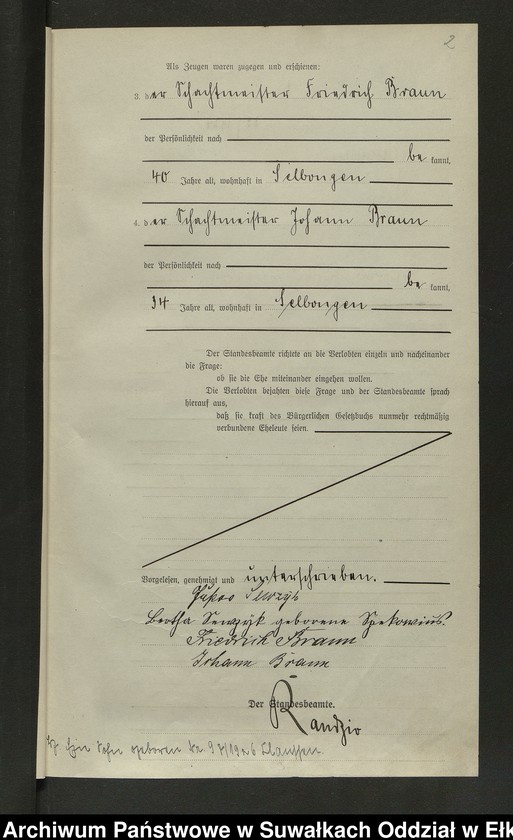 2
Als Zeugen waren zugegen und erschienen:
3. der Schachtmeister Friedrich Braun
der Persönlichkeit nach
be kannt,
40 Jahre alt, wohnhaft in Selbongen
4. der Schachtmeister Johann Braun
der Persönlichkeit nach
be kannt,
34 Jahre alt, wohnhaft in Selbongen
Der Standesbeamte richtete an die Verlobten einzeln und nacheinander
die Frage:
ob sie die Ehe miteinander eingehen wollen.
Die Verlobten bejahten diese Frage und der Standesbeamte sprach
hierauf aus,
daß sie kraft des Bürgerlichen Gesetzbuchs nunmehr rechtmäßig
verbundene Eheleute seien.
Vorgelesen, genehmigt und unterschrieben.
Bertha Sewzyk geborene Spekowius.
Friedrich Braun
Johann Braun
Der Standesbeamte.
Randzio
Ein Sohn geboren
Archiwum Państwowe w Suwałkach Oddział w Ełk